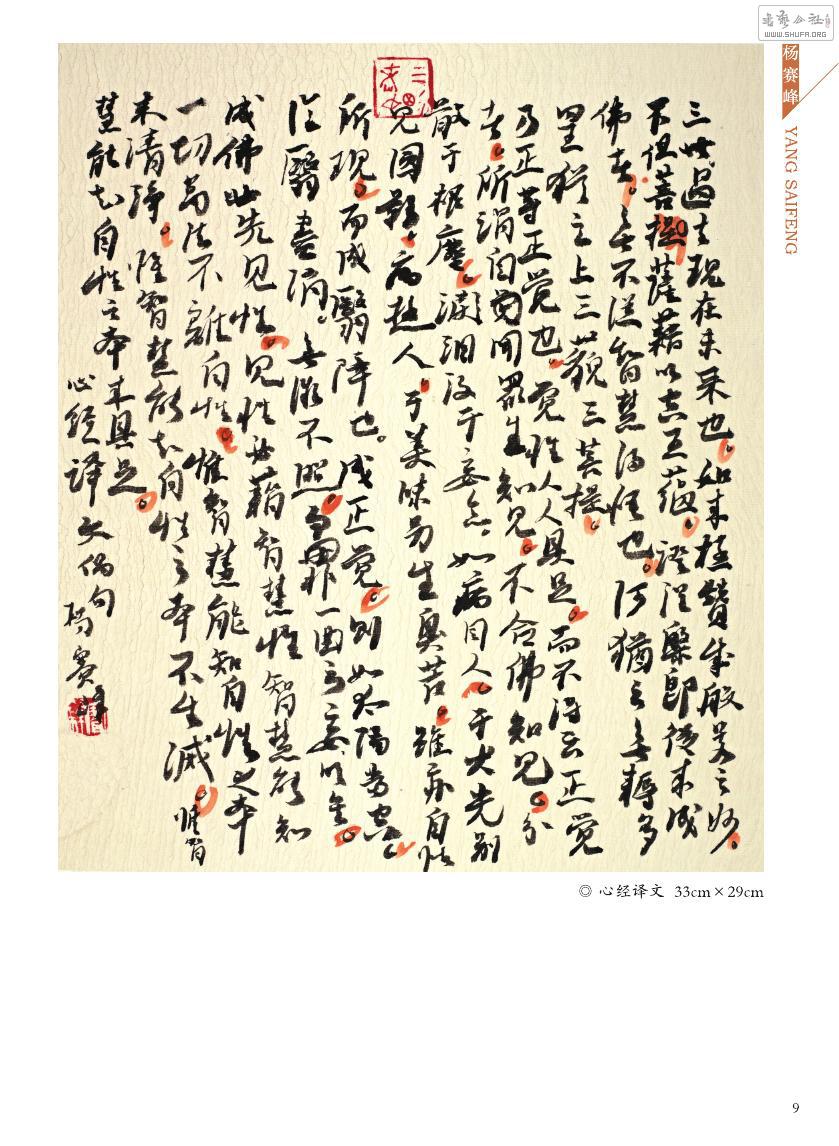 书艺公社
WWW.SHUFA.ORG
杨赛峰
YANG SAIFENG
三世过去现在未来也如来极赞般若之妙
不但菩提萨埵藉以空五蕴证涅槃即后来成
佛者无不从智慧得悟也阿耨言无耨多
罗犹言上三藐三菩提
乃正等正觉也觉性人人具足而不得云正觉
者所谓自蔽闻众生知见不合佛知见
散于根尘汩没于妄念如病目人于大光别
见圆影病热人于美味另生臭苦虽亦自性
所现而成翳障也成正觉则如太阳当空
从翳尽消无微不照
成佛必先见性见性必藉智慧性智慧能知
一切万法不离自性惟智慧能知自性之本
来清净惟智慧能知自性之本不生灭惟智
慧能知自性之本来具足
心经译文偈句
杨赛峰
◎ 心经译文 33cm×29cm
9